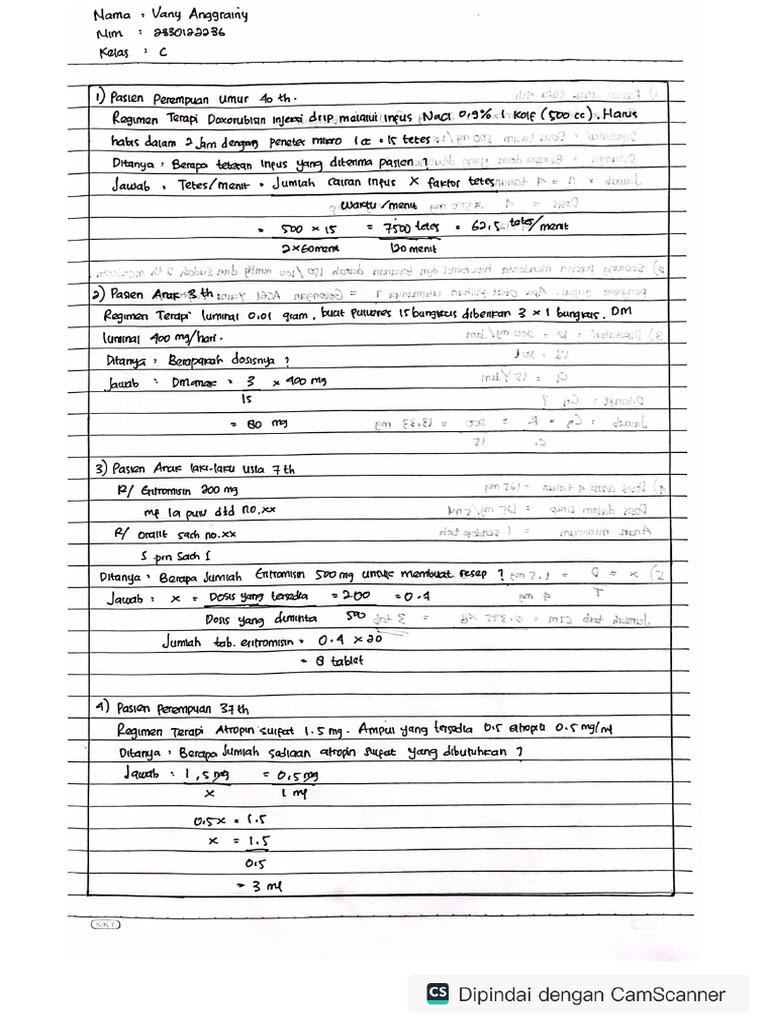 Nama : Vany Anggrainy
Nim : 2830122236
Kelas : C
1) Pasien Perempuan umur 40 th.
Regimen Terapi Doxorubisin injeksi drip melalui infus NaCl 0,9% 1 Kolf (500 cc). Harus
habis dalam 2 Jam dengan penetes micro 1 cc = 15 tetes
Ditanya : Berapa tetesan Infus yang diterima pasien ?
Jawab : Tetes/menit = Jumlah cairan infus x faktor tetes
Waktu /menit
= 500 x 15 = 7500 tetes = 62,5 tetes/menit
2 x 60 menit 120 menit
2) Pasien Anak 3 th.
Regimen Terapi luminal 0.01 gram, buat pulveres 15 bungkus diberikan 3 x 1 bungkus. DM
luminal 400 mg/hari.
Ditanya : Berapakah dosisnya ?
Jawab : DM anak = 3 x 400 mg
15
= 80 mg
3) Pasien Anak laki-laki usia 7 th
R/ Eritromisin 200 mg
mf la pulv dtd no.xx
R/ Oralit sach no.xx
S prn Sach 1
Ditanya : Berapa Jumlah Eritromisin 500 mg untuk membuat resep ?
Jawab : x = Dosis yang tersedia = 200 = 0.4
Dosis yang diminta 500
Jumlah tab. eritromisin = 0.4 x 20
= 8 tablet
4) Pasien Perempuan 37 th
Regimen Terapi Atropin sulfat 1.5 mg. Ampul yang tersedia 0.5 mg/ml
Ditanya : Berapa Jumlah sediaan atropin sulfat yang dibutuhkan ?
Jawab : 1,5 mg = 0,5 mg
x 1 ml
0.5x = 1.5
x = 1.5
0.5
= 3 ml
KIKY
CS Dipindai dengan CamScanner